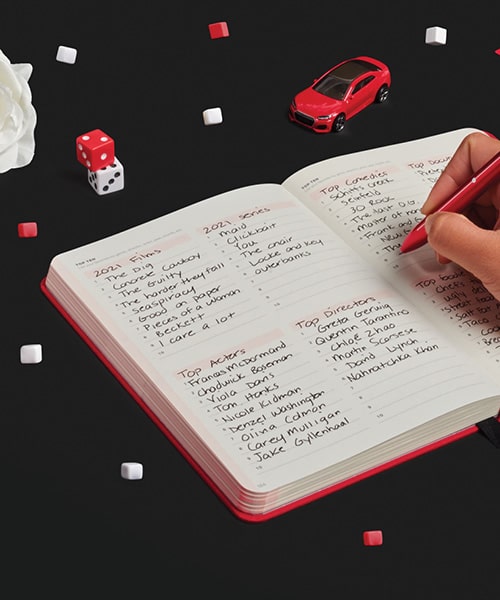 TOP TEN
2021 Films
The Dig
Concrete Cowboy
The Guilty
The harder they fall
Seaspiracy
Good on paper
Pieces of a woman
Beckett
I care a lot
2021, series
Maid
Clickbair
You
The chair
Locke and key
outerbanks
Top Acters
Frances McDormand
Chadwick Boseman
Viola Davis
Tom Hanks
Nicole Kidman
Denzel Washington
Olivia Colman
Carey Mulligan
Jake Gyllenhaal
Top Directors
Greta Gerwig
Quentin Tarantino
Chloé Zhao
Martin Scorsese
David Lynch
Nahnatchka Khan
TOP TEN
Top Comedies
Schitt's Creek
Seinfeld
30 Rock
The last O.G.
Master of none
Frank and
New
Top
Top
Chef's
Ugly
Street food
Salt